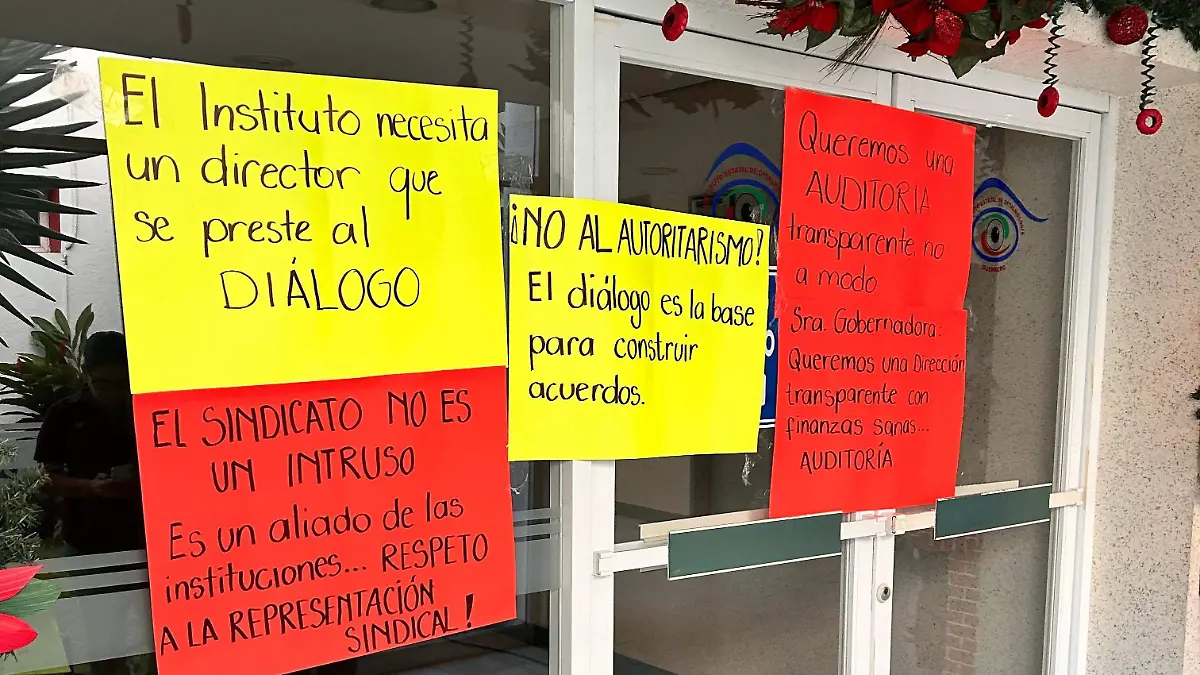 El Instituto necesita
un director que
se preste al
DIÁLOGO
EL SINDICATO NO ES
UN INTRUSO
Es un aliado de las
instituciones... RESPETO
A LA REPRESENTACIÓN
SINDICAL!
¡NO AL AUTORITARISMO!
El diálogo es la base
para construir
acuerdos.
Queremos una
AUDITORÍA
transparente, no
a modo
Sra. Gobernadora:
Queremos una Dirección
transparente con
finanzas sanas...
AUDITORÍA